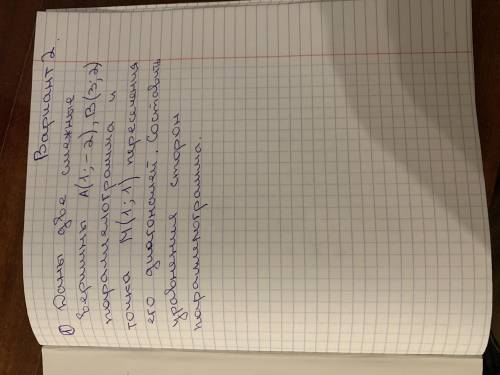 Вариант 2.
① Даны две смежные
вершины А(1; -2), В(3; 2)
параллелограмма и
точка М(1; 1) пересечения
его диагоналей. Составить
уравнения сторон
параллелограмма.